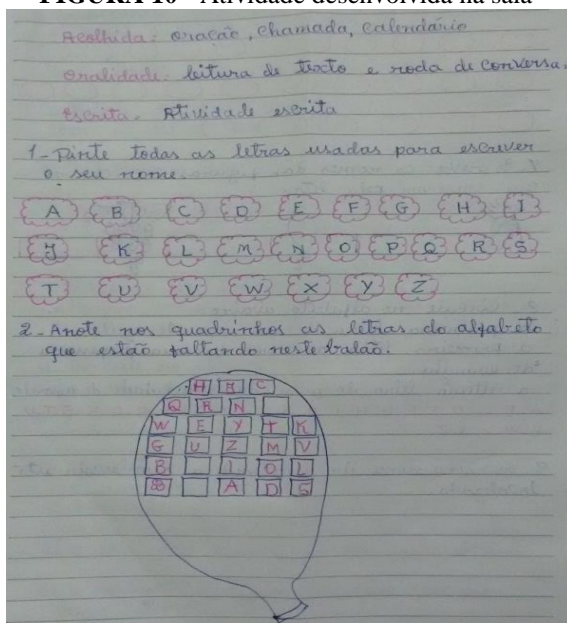 FIGURA 16 - Atividade desenvolvida na sala
Acolhida: oração, chamada, calendário
Oralidade: leitura de texto e roda de conversa.
Escrita. Atividade escrita
1- Pinte todas as letras usadas para escrever
o seu nome.
A B C D E F G H I
J K L M N O P Q R S
T U V W X Y Z
2- Anote nos quadrinhos as letras do alfabeto
que estão faltando neste balão.
H C
Q R N
W E Y T K
G U Z M V
B I O L
A D S